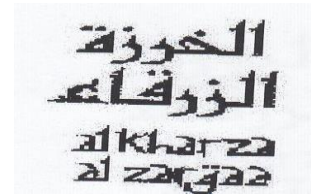 الخرزة
الزرقاء
al kharza
al zarqaa